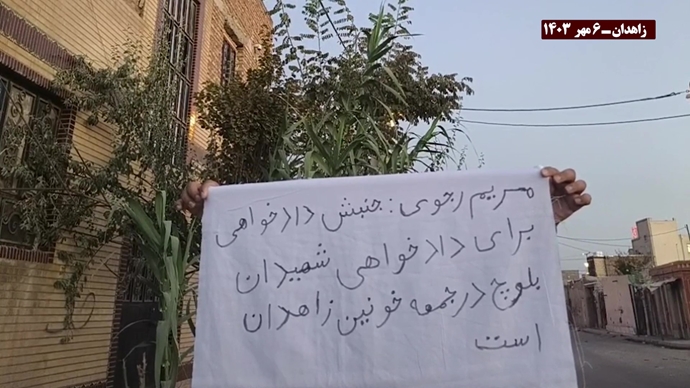 زاهدان_۶ مهر ۱۴۰۳
مریم رجوی: جنبش دادخواهی
برای دادخواهی شهیدان
بلوچ در جمعه خونین زاهدان
است